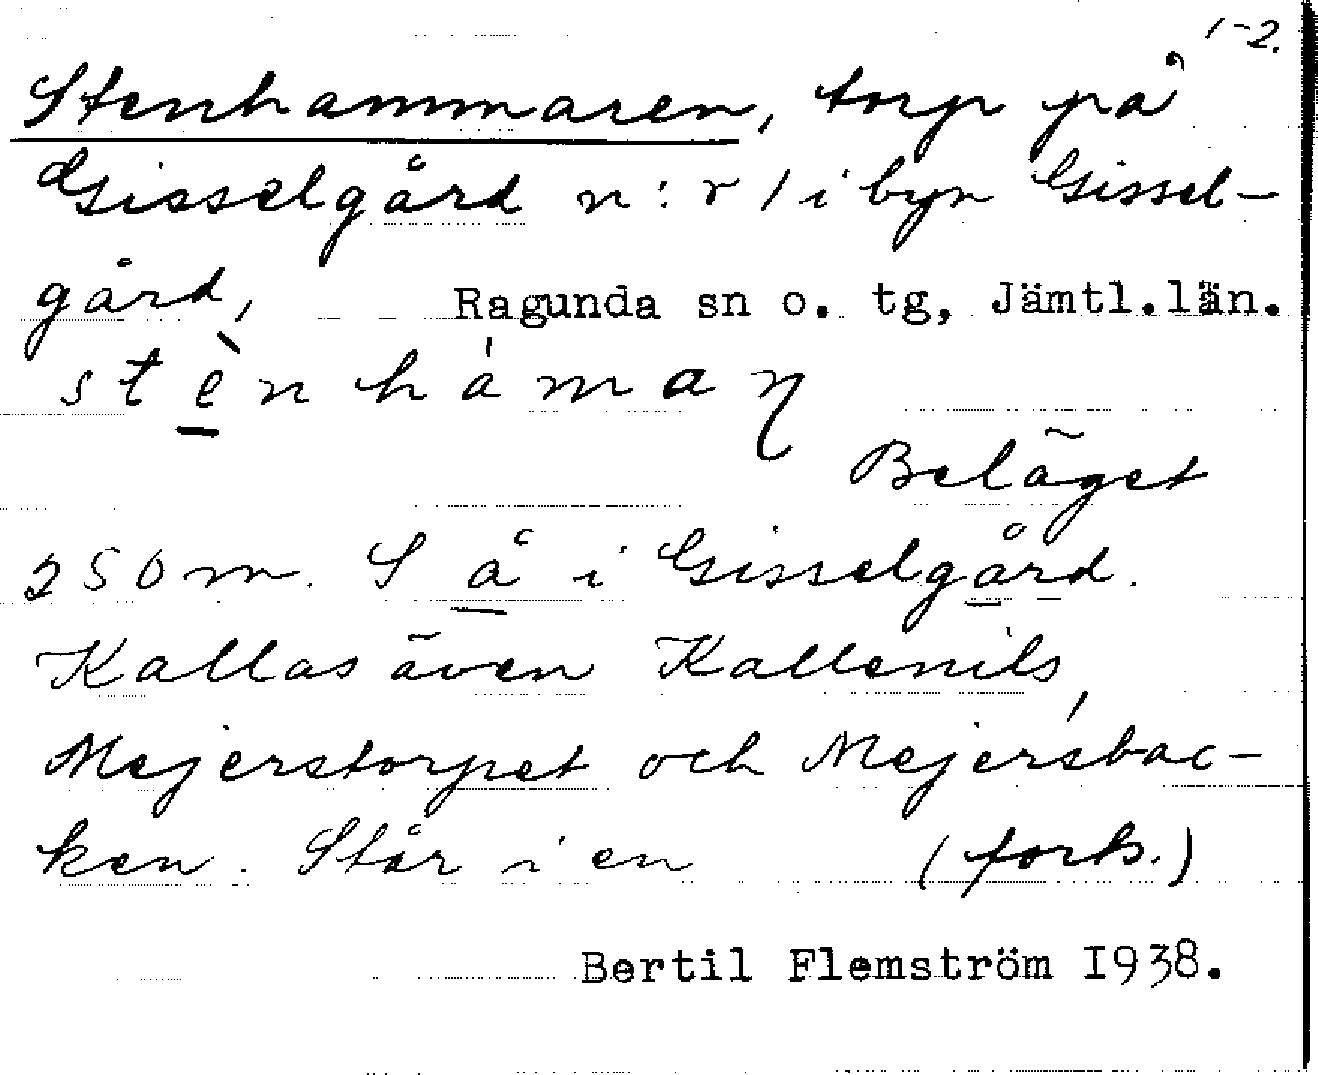 1-2.
Stenhammaren, torp på
Gisselgård n:r 1 i byn Gissel-
gård, Ragunda sn o. tg, Jämtl.län.
stè̱nhámaŋ
Beläget
250 m. S å i Gisselgård.
Kallas även Kallenils,
Mejerstorpet och Mejersbac-
ken. Står i en (forts.)
Bertil Flemström 1938.